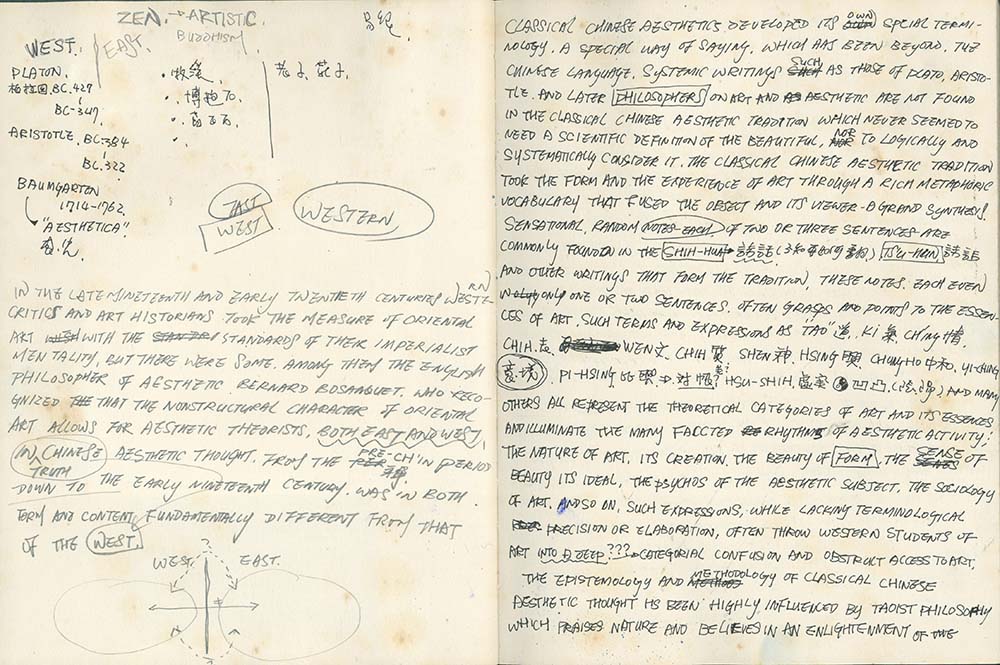 ZEN → ARTISTIC
BUDDHISM
WEST. EAST.
PLATON.
柏拉図. BC.427
BC-347
老子. 莊子.
ARISTOTLE. BC-384
BC.322
BAUMGARTEN
1714-1762.
"AESTHETICA".
EAST
WEST
WESTERN
IN THE LATE NINETEENTH AND EARLY TWENTIETH CENTURIES WESTERN
CRITICS AND ART HISTORIANS TOOK THE MEASURE OF ORIENTAL
ART WITH THE STANDARDS OF THEIR IMPERIALIST
MENTALITY, BUT THERE WERE SOME. AMONG THEM THE ENGLISH
PHILOSOPHER OF AESTHETIC BERNARD BOSANQUET. WHO RECO-
GNIZED THAT THE NONSTRUCTURAL CHARACTER OF ORIENTAL
ART ALLOWS FOR AESTHETIC THEORISTS, BOTH EAST AND WEST,
IN CHINESE AESTHETIC THOUGHT. FROM THE PRE-CH'IN PERIOD
TRUTH
DOWN TO THE EARLY NINETEENTH CENTURY. WAS IN BOTH
FORM AND CONTENT, FUNDAMENTALLY DIFFERENT FROM THAT
OF THE WEST.
?
WEST. EAST.
≠
?
CLASSICAL CHINESE AESTHETICS DEVELOPED ITS OWN SPCIAL TERMI-
NOLOGY. A SPECIAL WAY OF SAYING, WHICH HAS BEEN BEYOND. THE
CHINESE LANGUAGE. SYSTEMIC WRITINGS SUCH AS THOSE OF PLATO, ARISTO-
TLE. AND LATER PHILOSOPHERS ON ART AND AESTHETIC ARE NOT FOUND
IN THE CLASSICAL CHINESE AESTHETIC TRADITION WHICH NEVER SEEMED TO
NEED A SCIENTIFIC DEFINITION OF THE BEAUTIFUL, NOR TO LOGICALLY AND
SYSTEMATICALLY CONSIDER IT. THE CLASSICAL CHINESE AESTHETIC TRADITION
TOOK THE FORM AND THE EXPERIENCE OF ART THROUGH A RICH METAPHORIC
VOCABULARY THAT FUSED THE OBJECT AND ITS VIEWER-A GRAND SYNTHESIS.
SENSATIONAL, RANDOM NOTES-EACH OF TWO OR THREE SENTENCES-ARE
COMMONLY FOUNDED IN THE SHIH-HUA 詩話 TS'U-HUA 詩話
AND OTHER WRITINGS THAT FORM THE TRADITION, THESE NOTES. EACH EVEN
ONLY ONE OR TWO SENTENCES. OFTEN GRASPS AND POINTS TO THE ESSEN-
CES OF ART. SUCH TERMS AND EXPRESSIONS AS TAO" 道, KI 氣 CHING 情
CHIH. 志. WEN 文. CHIH 質 SHEN 神. HSING 興 CHUNG HO 中和. YI-CHING
意境. PI-HSING 比興 → 对恨? HSU-SHIH. 虛実 凹凸. AND MANY
OTHERS ALL REPRESENT THE THEORETICAL CATEGORIES OF ART AND ITS ESSENCES
AND ILLUMINATE THE MANY FACCTED RHYTHMS OF AESTHETIC ACTIVITY;
THE NATURE OF ART. ITS CREATION. THE BEAUTY OF FORM. THE SENSE OF
BEAUTY ITS IDEAL, THE PSYCHOS OF THE AESTHETIC SUBJECT, THE SOCIOLOGY
OF ART. AND SO ON, SUCH EXPRESSIONS, WHILE LACKING TERMINOLOGICAL
PRECISION OR ELABORATION, OFTEN THROW WESTERN STUDENTS OF
ART INTO A DEEP??? CATEGORIAL CONFUSION AND OBSTRUCT ACCESS TO ART.
THE EPISTEMOLOGY AND METHODOLOGY OF CLASSICAL CHINESE
AESTHETIC THOUGHT HS BEEN HIGHLY INFLUENCED BY TAOIST PHILOSOPHY
WHICH PRAISES NATURE AND BELIEVES IN AN ENLIGHTENMENT OF THE